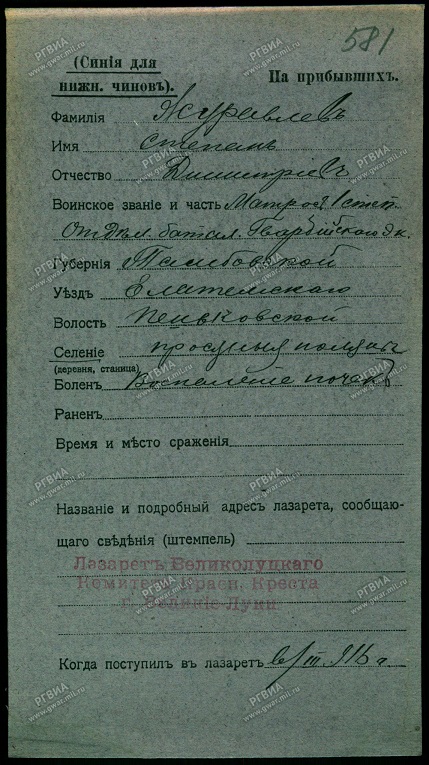 581
(Синія для
нижн. чиновъ).
На прибывшихъ.
Фамилія Журавлевъ
Имя Степанъ
Отчество Дмитріевъ
Воинское званіе и часть Матрос 1 стат.
Отдѣл. батал. Гвардейского Эк.
Губернія Тамбовской
Уѣздъ Елатемскаго
Волость
Селеніе
(деревня, станица)
Боленъ Воспаленіе почекъ
Раненъ
Время и мѣсто сраженія
Названіе и подробный адресъ лазарета, сообщаю-
щаго свѣдѣнія (штемпель)
Лазаретъ Великолуцкаго
Комитета Красн. Креста
г. Великіе-Луки
Когда поступил въ лазаретъ
РГВИА
www.gwar.mil.ru